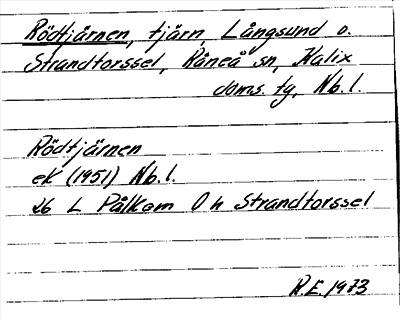 Rödtjärnen, tjärn Långsund o.
Strandtorssel, Råneå sn, Kalix
doms. tg, Nb. l.
Rödtjärnen
ek (1951) Nb. l.
26 L Pålkem 0 h Strandtorssel
R.E. 1973